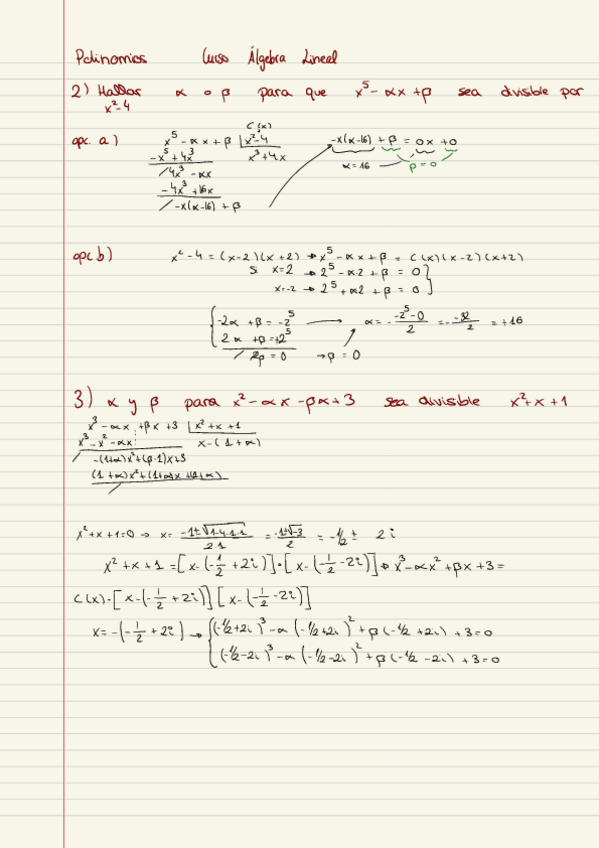 Polinomios Curso Álgebra Lineal
2) Hallar α o β para que x⁵ - αx + β sea divisible por
x²-4
opc. a) x⁵ - αx + β | x²-4 C(x) -x(α-16) + β = 0x + 0
-x⁵ + 4x³ x³+4x α = 16 β = 0
/ 4x³ - αx
- 4x³ + 16x
/ -x(α-16) + β
opc b) x² - 4 = (x-2)(x+2) → x⁵ - αx + β = C(x)(x-2)(x+2)
Si x=2 → 2⁵ - α·2 + β = 0
x=-2 → 2⁵ + α2 + β = 0
-2α + β = -2⁵ → α = - -2⁵-0 / 2 = - -32 / 2 = +16
2α + β = +2⁵
/ 2β = 0 → β = 0
3) α y β para x² - αx - βx + 3 sea divisible x²+x+1
x³ - αx + βx + 3 | x²+x+1
x³ - x² - αx x - (1+α)
-(1+α)x²+(β-1)x+3
(1+α)x²+(1+α)x+(1+α)
x²+x+1=0 → x = -1±√1-4·1·1 / 2·1 = -1±√-3 / 2 = -1/2 ± 2i
x²+x+1 = [x-(-1/2+2i)]·[x-(-1/2-2i)] → x³ - αx² + βx + 3 =
C(x)·[x-(-1/2+2i)][x-(-1/2-2i)]
x = -(-1/2+2i) → (-1/2+2i)³ - α(-1/2+2i)² + β(-1/2+2i) + 3 = 0
(-1/2-2i)³ - α(-1/2-2i)² + β(-1/2-2i) + 3 = 0